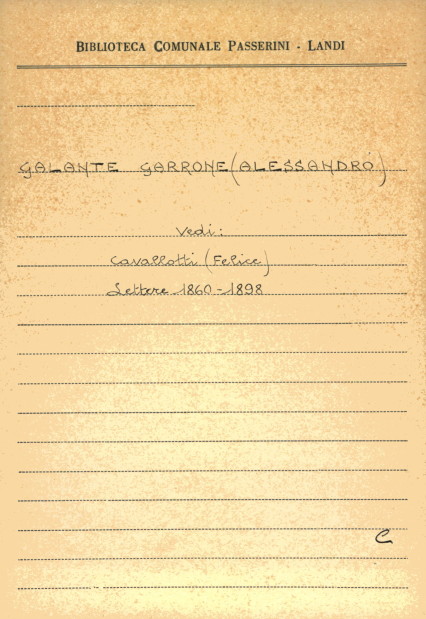 BIBLIOTECA COMUNALE PASSERINI - LANDI
GALANTE GARRONE (ALESSANDRO)
Vedi:
Cavallotti (Felice)
Lettere 1860-1898
C